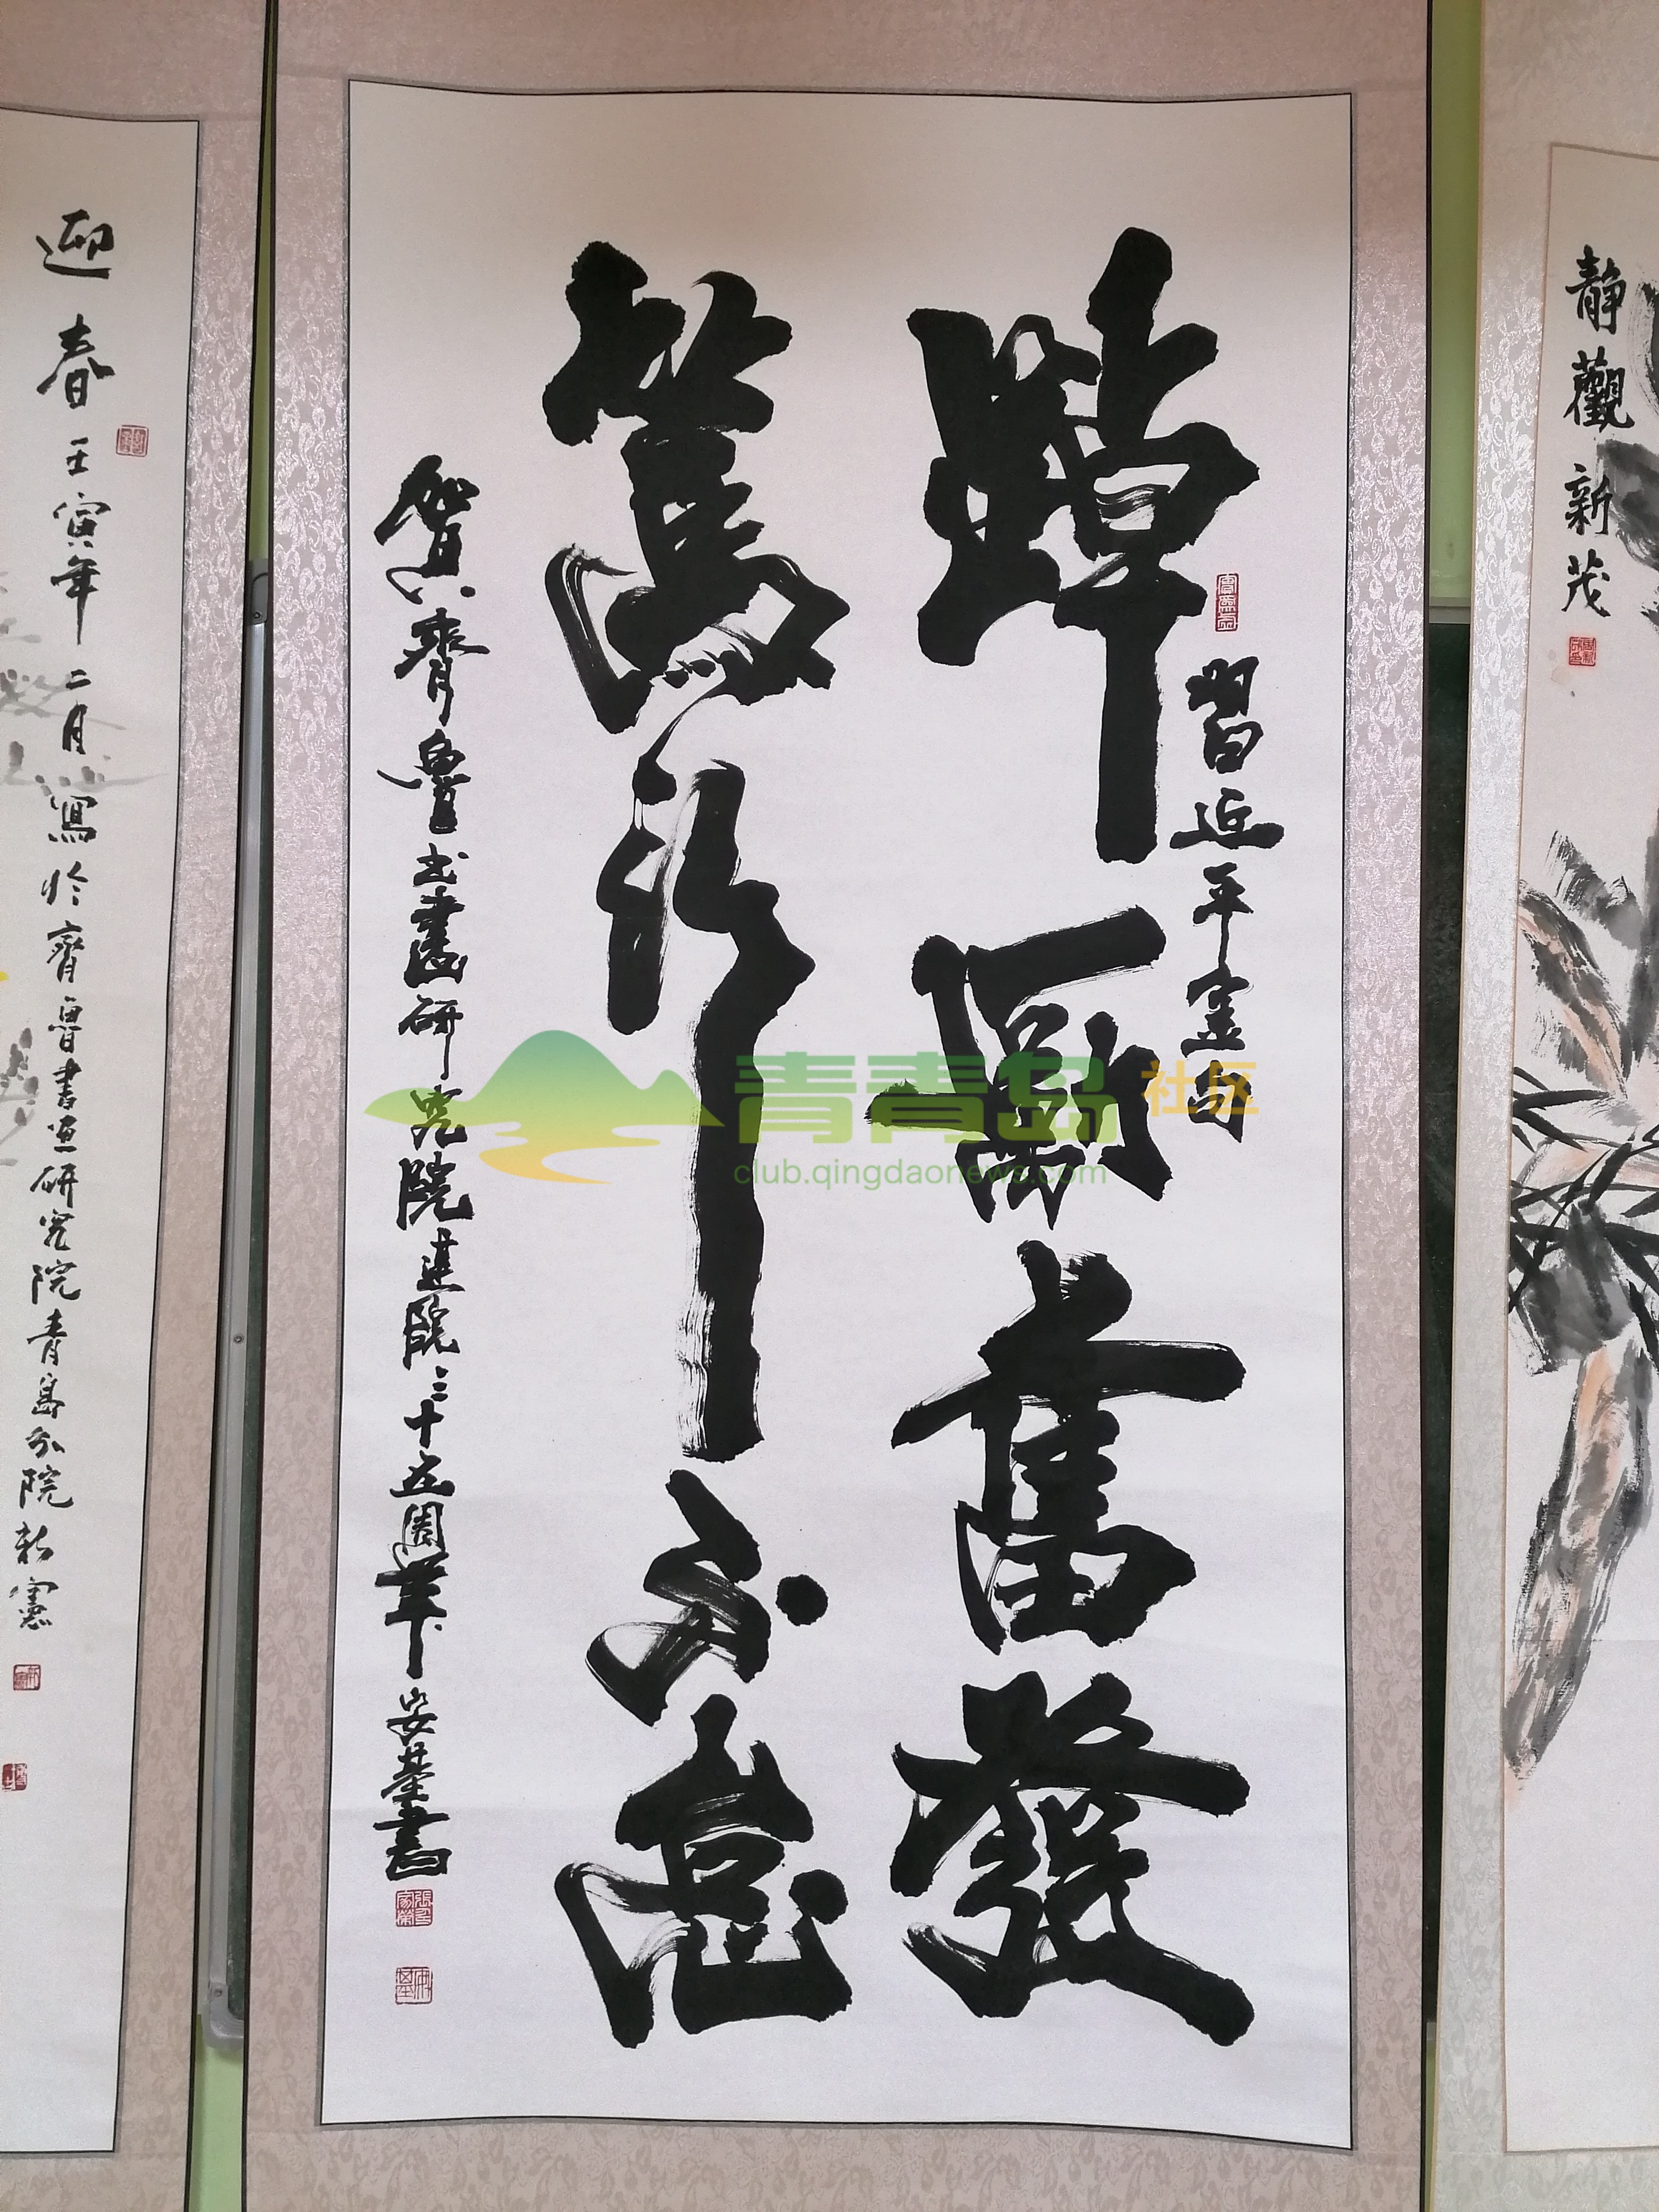 靜觀新茂
習近平金句
踔厲奮發
篤行不怠
賀齊魯書畫研究院建院三十五周年 安基書
迎春 壬寅年二月寫於齊魯書画研究院青島分院 新憲
青青岛社区
club.qingdaonews.com